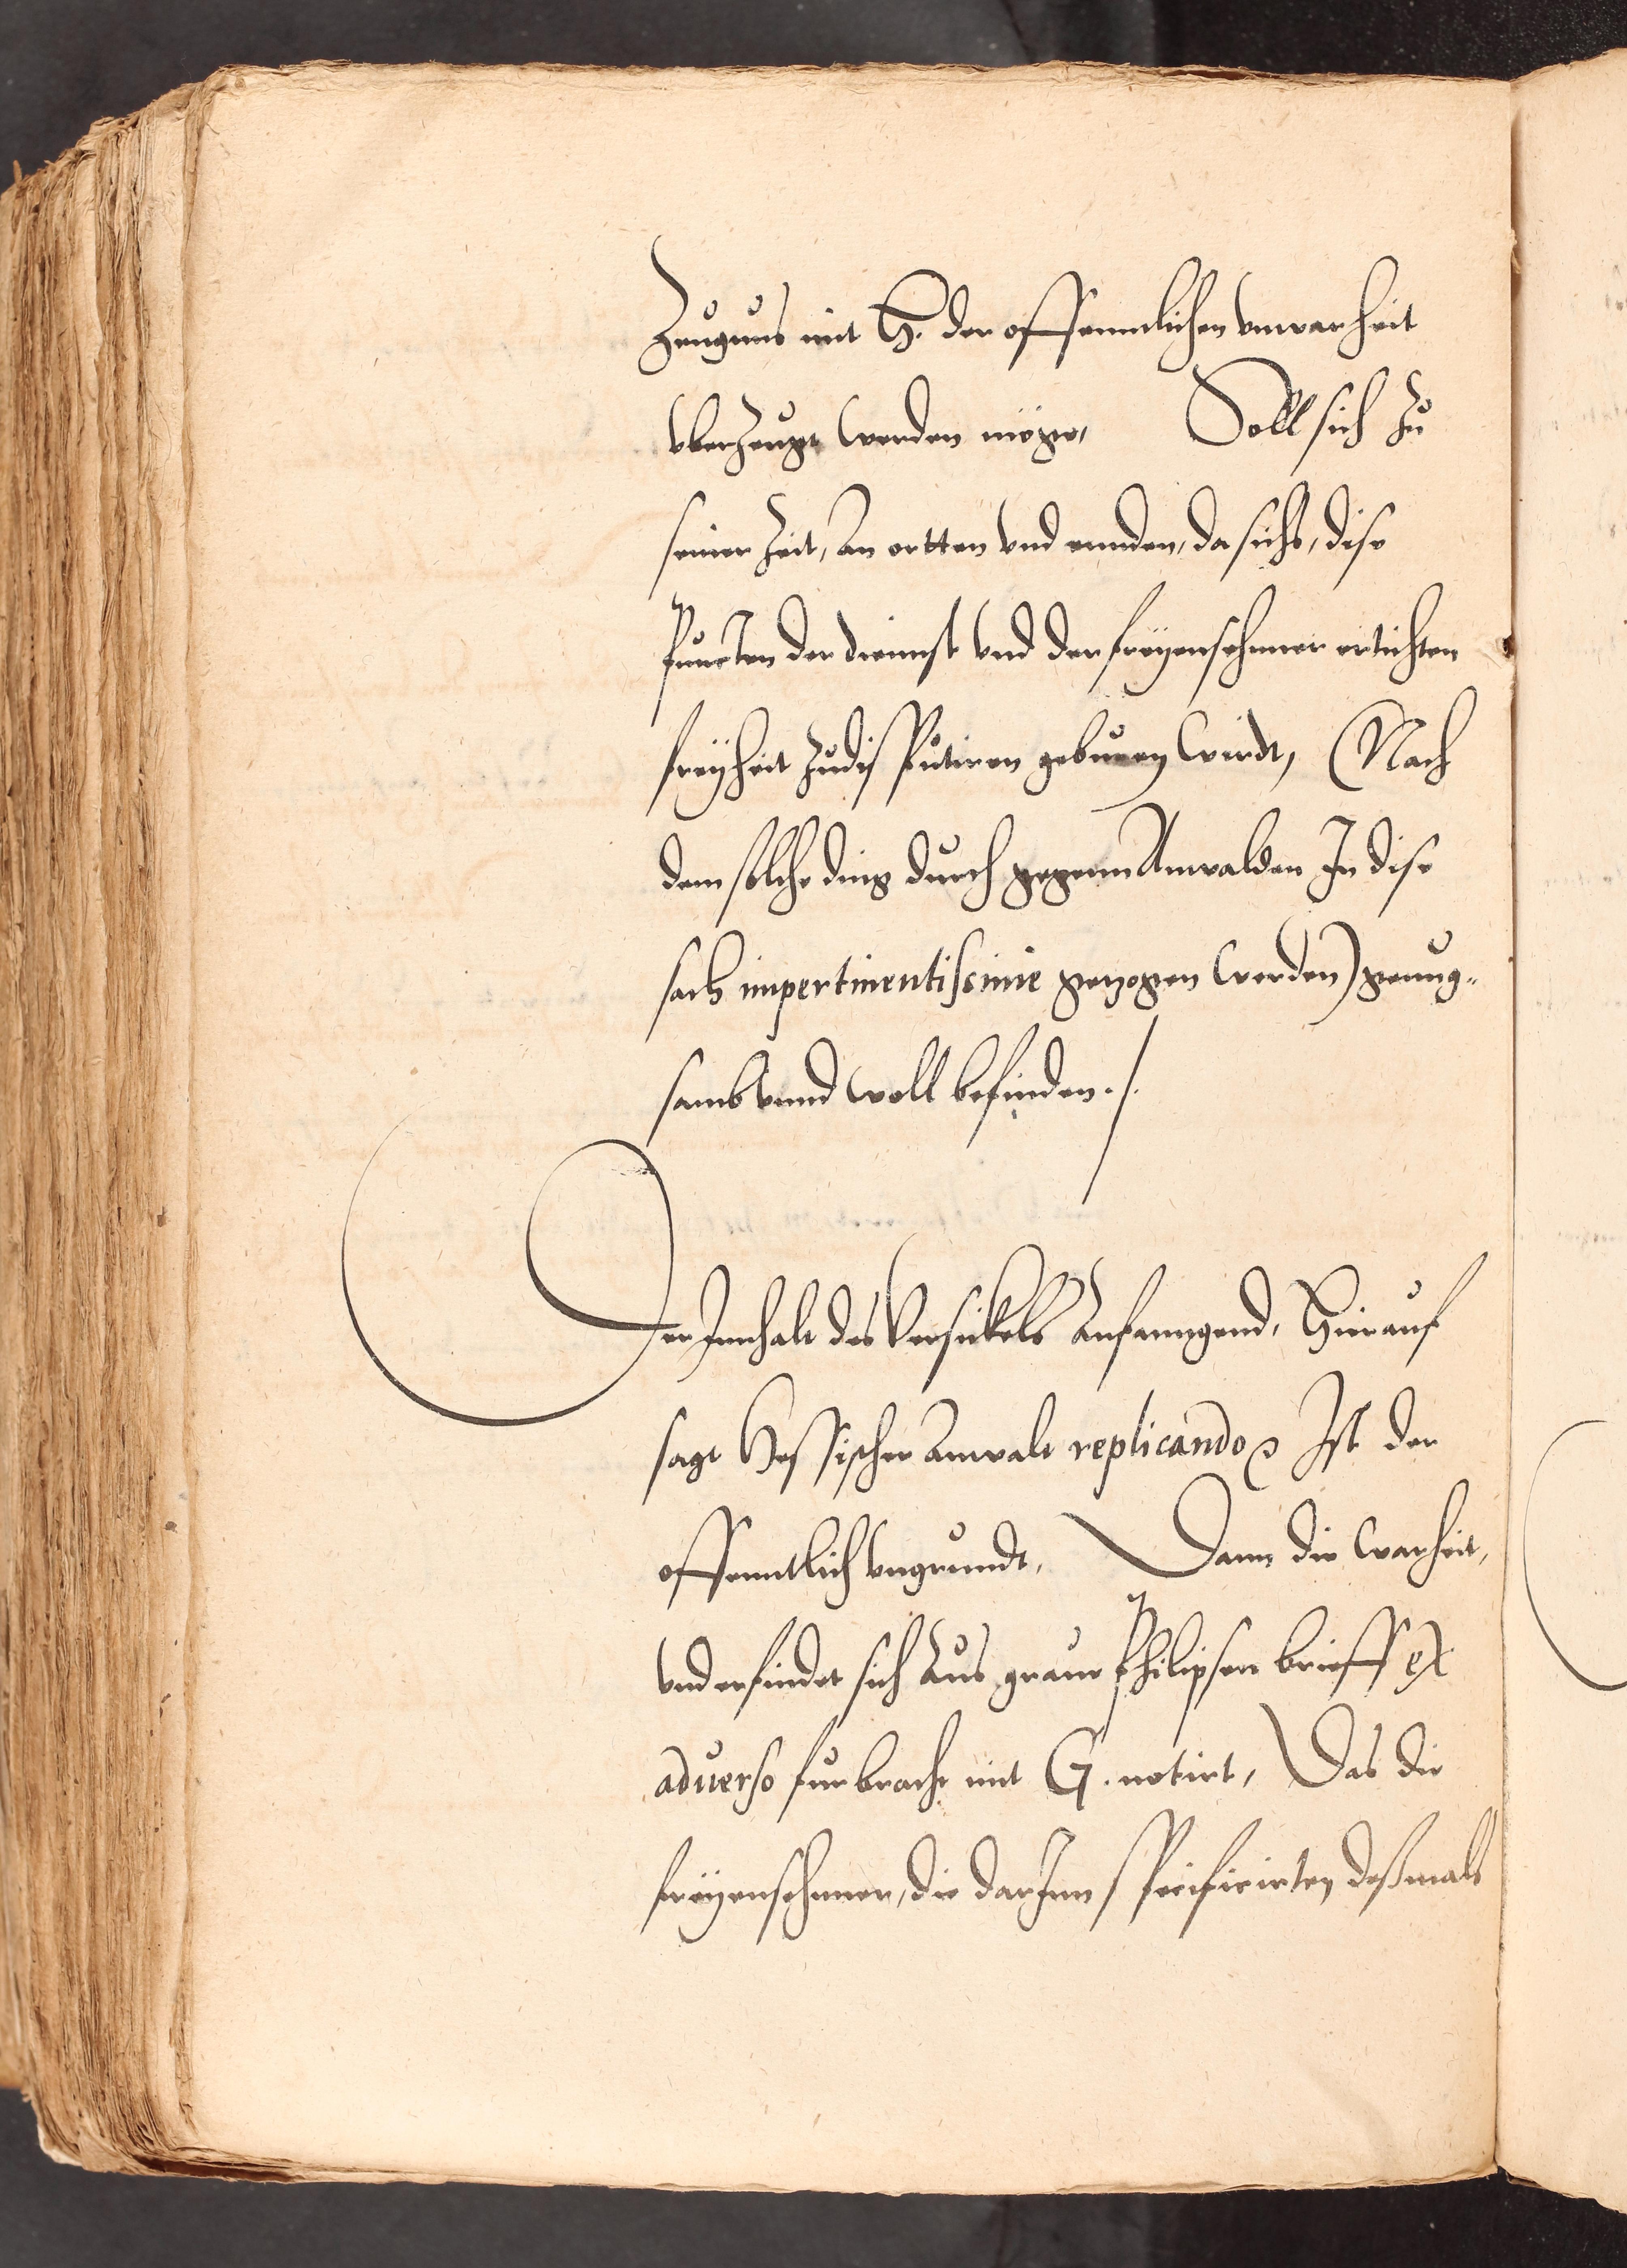 Zeugnus mit H. der offenntlichen unwarheit
uberzeugt werden möge, Soll sich zu
seiner zeit, an ortten und ennden, da sichs, dise
puncten der diennst und der freyensehmer ertichten
freyheit zudisputiren geburen wirdt, (Nach
dem solche ding durch gegenn Anwalden In dise
sach impertinentissime gezogen werden) genug-
samb unnd woll befinden ./.
Der Innhalt des Versickels Anfanngend, Hierauf
sagt Hessischer Anwalt replicando ꝛc Ist der
offenntlich ungrundt, Dann die warheit,
und erfindet sich aus grave Philipsen brieff ex
aduerso furbracht mit G. notirt, Das die
freyensehmer, die darInn specificirten deßmals